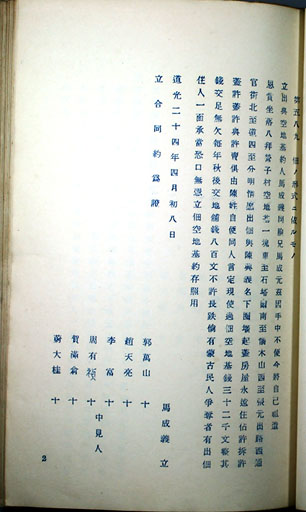 第五八九 個ノ形式ニ依ルモノ
立出與空地基約人馬成義同胞兄馬成元茲因手中不便今將自己祖遺
恩賞坐落八拜營子村空地基一塊東至石塔爾南至脩木山西至張元出路西邊
官街北至道四至分明情愿出佃與陳興義名下圈墻起蓋房屋永遠住佔許拆許
蓋許蓋許與許賣俱由陳姓自便同人言定現使過佃空地基錢三十二千文整其
錢交足無欠每年秋後交地鋪錢八百文不許長跌倘有蒙古民人爭奪者有出佃
任人一面承當恐口無憑立佃空地基約存照用
道光二十四年四月初八日 馬成義 立
立合同約爲證
郭萬山 十
趙天亮 十
李富 十
周有 中見人
賀滿倉 十
蔚大桂 十
2